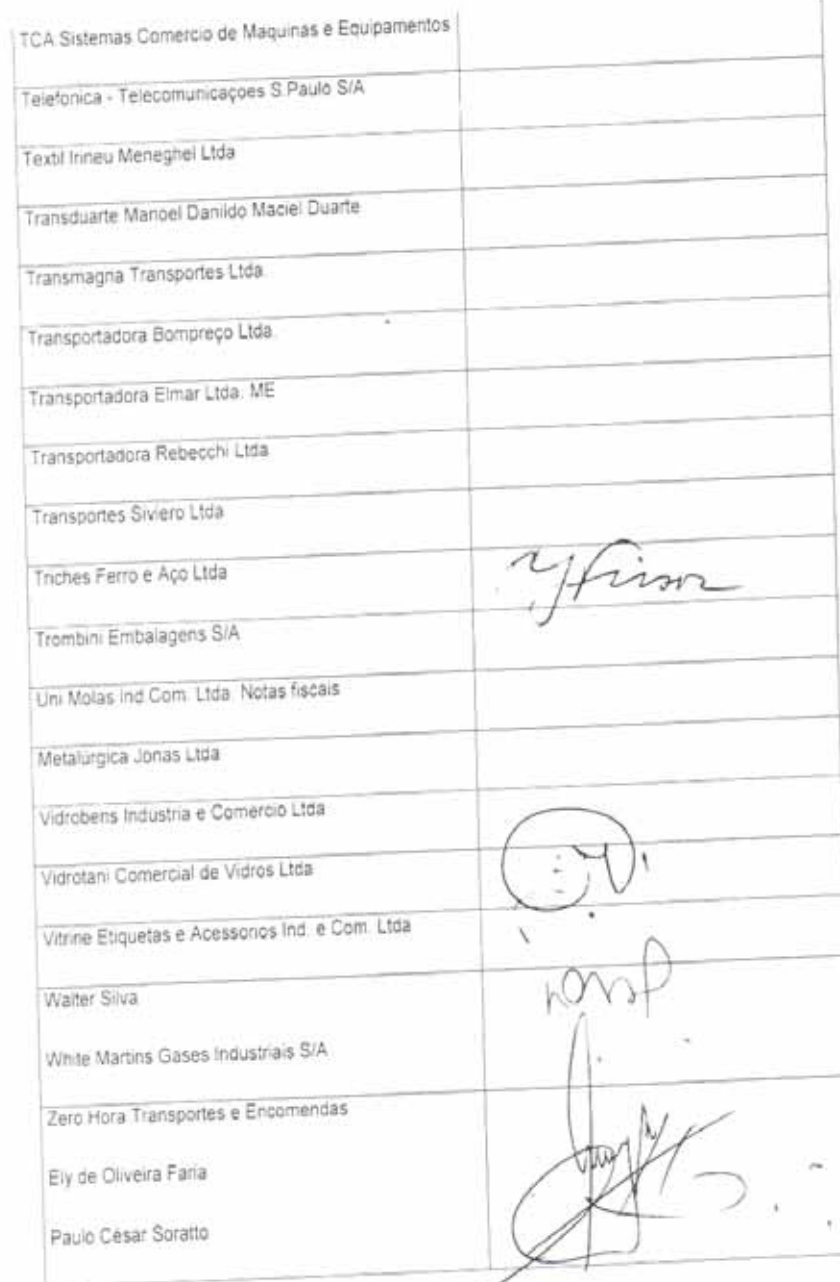 TCA Sistemas Comercio de Maquinas e Equipamentos
Telefonica - Telecomunicaçoes S.Paulo S/A
Textil Irineu Meneghel Ltda
Transduarte Manoel Danildo Maciel Duarte
Transmagna Transportes Ltda.
Transportadora Bompreço Ltda.
Transportadora Elmar Ltda. ME
Transportadora Rebecchi Ltda
Transportes Siviero Ltda
Triches Ferro e Aço Ltda
Trombini Embalagens S/A
Uni Molas Ind Com. Ltda. Notas fiscais
Metalúrgica Jonas Ltda
Vidrobens Industria e Comercio Ltda
Vidrotani Comercial de Vidros Ltda
Vitrine Etiquetas e Acessorios Ind. e Com. Ltda
Walter Silva
White Martins Gases Industriais S/A
Zero Hora Transportes e Encomendas
Ely de Oliveira Faria
Paulo César Soratto